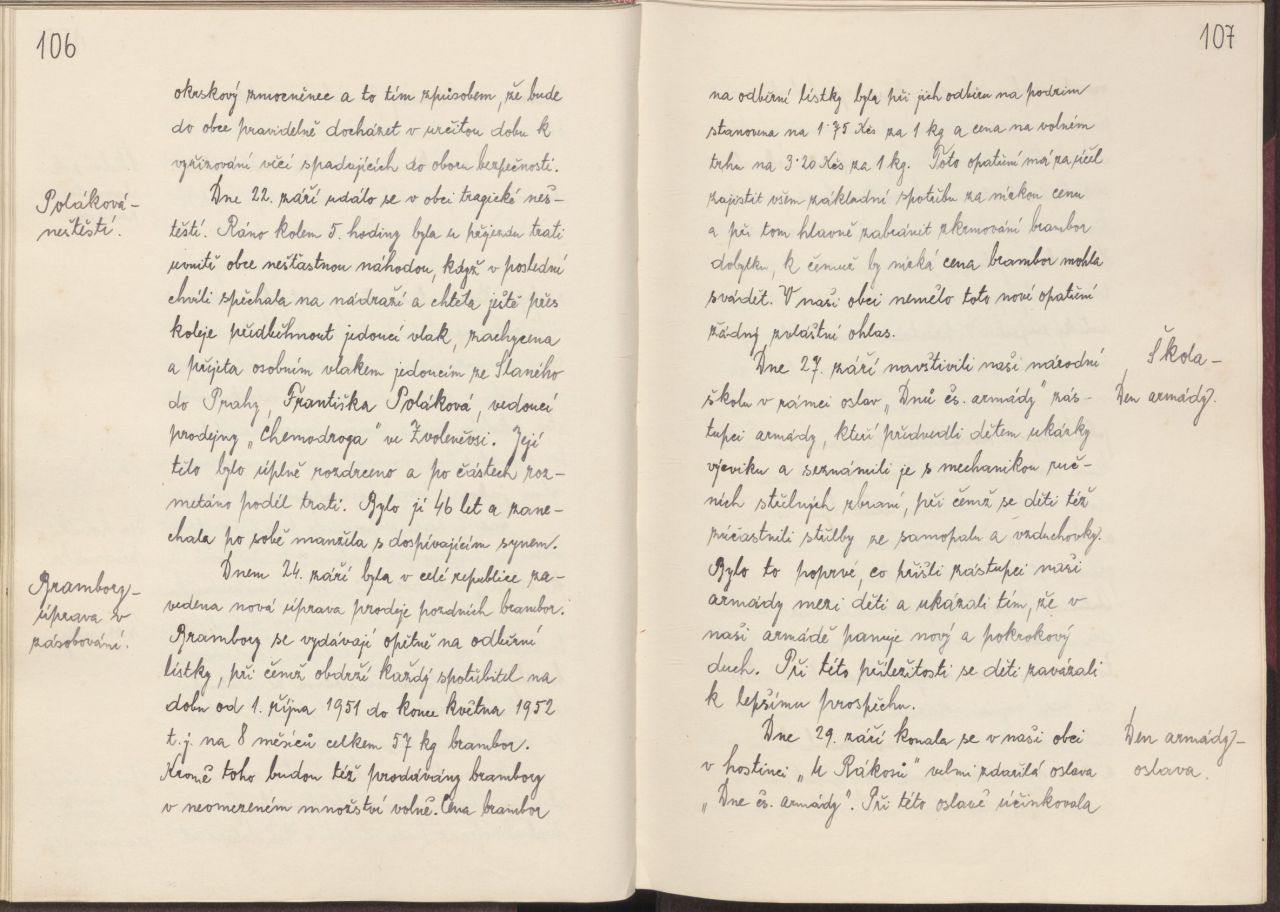 106
okrskový zmocněnec a to tím způsobem, že bude
do obce pravidelně docházet v určitou dobu k
vyřizování věcí spadajících do oboru bezpečnosti.
Poláková-
neštěstí.
Dne 22. září událo se v obci tragické neš-
těstí. Ráno kolem 5. hodiny byla u přejezdu trati
uvnitř obce nešťastnou náhodou, když v poslední
chvíli spěchala na nádraží a chtěla ještě přes
koleje předběhnout jedoucí vlak, zachycena
a přejeta osobním vlakem jedoucím ze Slaného
do Prahy, Františka Poláková, vedoucí
prodejny „Chemodroga" ve Zvoleněvsi. Její
tělo bylo úplně rozdrceno a po částech roz-
metáno podél trati. Bylo jí 46 let a zane-
chala po sobě manžela s dospívajícím synem.
Brambory-
úprava v
zásobování.
Dnem 24. září byla v celé republice za-
vedena nová úprava prodeje pozdních brambor.
Brambory se vydávají opětně na odběrní
lístky, při čemž obdrží každý spotřebitel na
dobu od 1. října 1951 do konce května 1952
t.j. na 8 měsíců celkem 57 kg brambor.
Kromě toho budou též prodávány brambory
v neomezeném množství volně. Cena brambor
107
na odběrní lístky byla při jich odběru na podzim
stanovena na 1·75 Kčs za 1 kg a cena na volném
trhu na 3·20 Kčs za 1 kg. Toto opatření má za účel
zajistit všem základní spotřebu za nízkou cenu
a při tom hlavně zabránit zkrmování brambor
dobytku, k čemuž by nízká cena brambor mohla
svádět. V naší obci nemělo toto nové opatření
žádný zvláštní ohlas.
Škola-
Den armády.
Dne 27. září navštívili naši národní
školu v rámci oslav „Dnů čs. armády" zás-
tupci armády, kteří předvedli dětem ukázky
výcviku a seznámili je s mechanikou ruč-
ních střelných zbraní, při čemž se děti též
zúčastnili střelby ze samopalu a vzduchovky.
Bylo to poprvé, co přišli zástupci naší
armády mezi děti a ukázali tím, že v
naší armádě panuje nový a pokrokový
duch. Při této příležitosti se děti zavázali
k lepšímu prospěchu.
Den armády-
oslava.
Dne 29. září konala se v naší obci
v hostinci „U Rákosů" velmi zdařilá oslava
„Dne čs. armády". Při této oslavě účinkovala